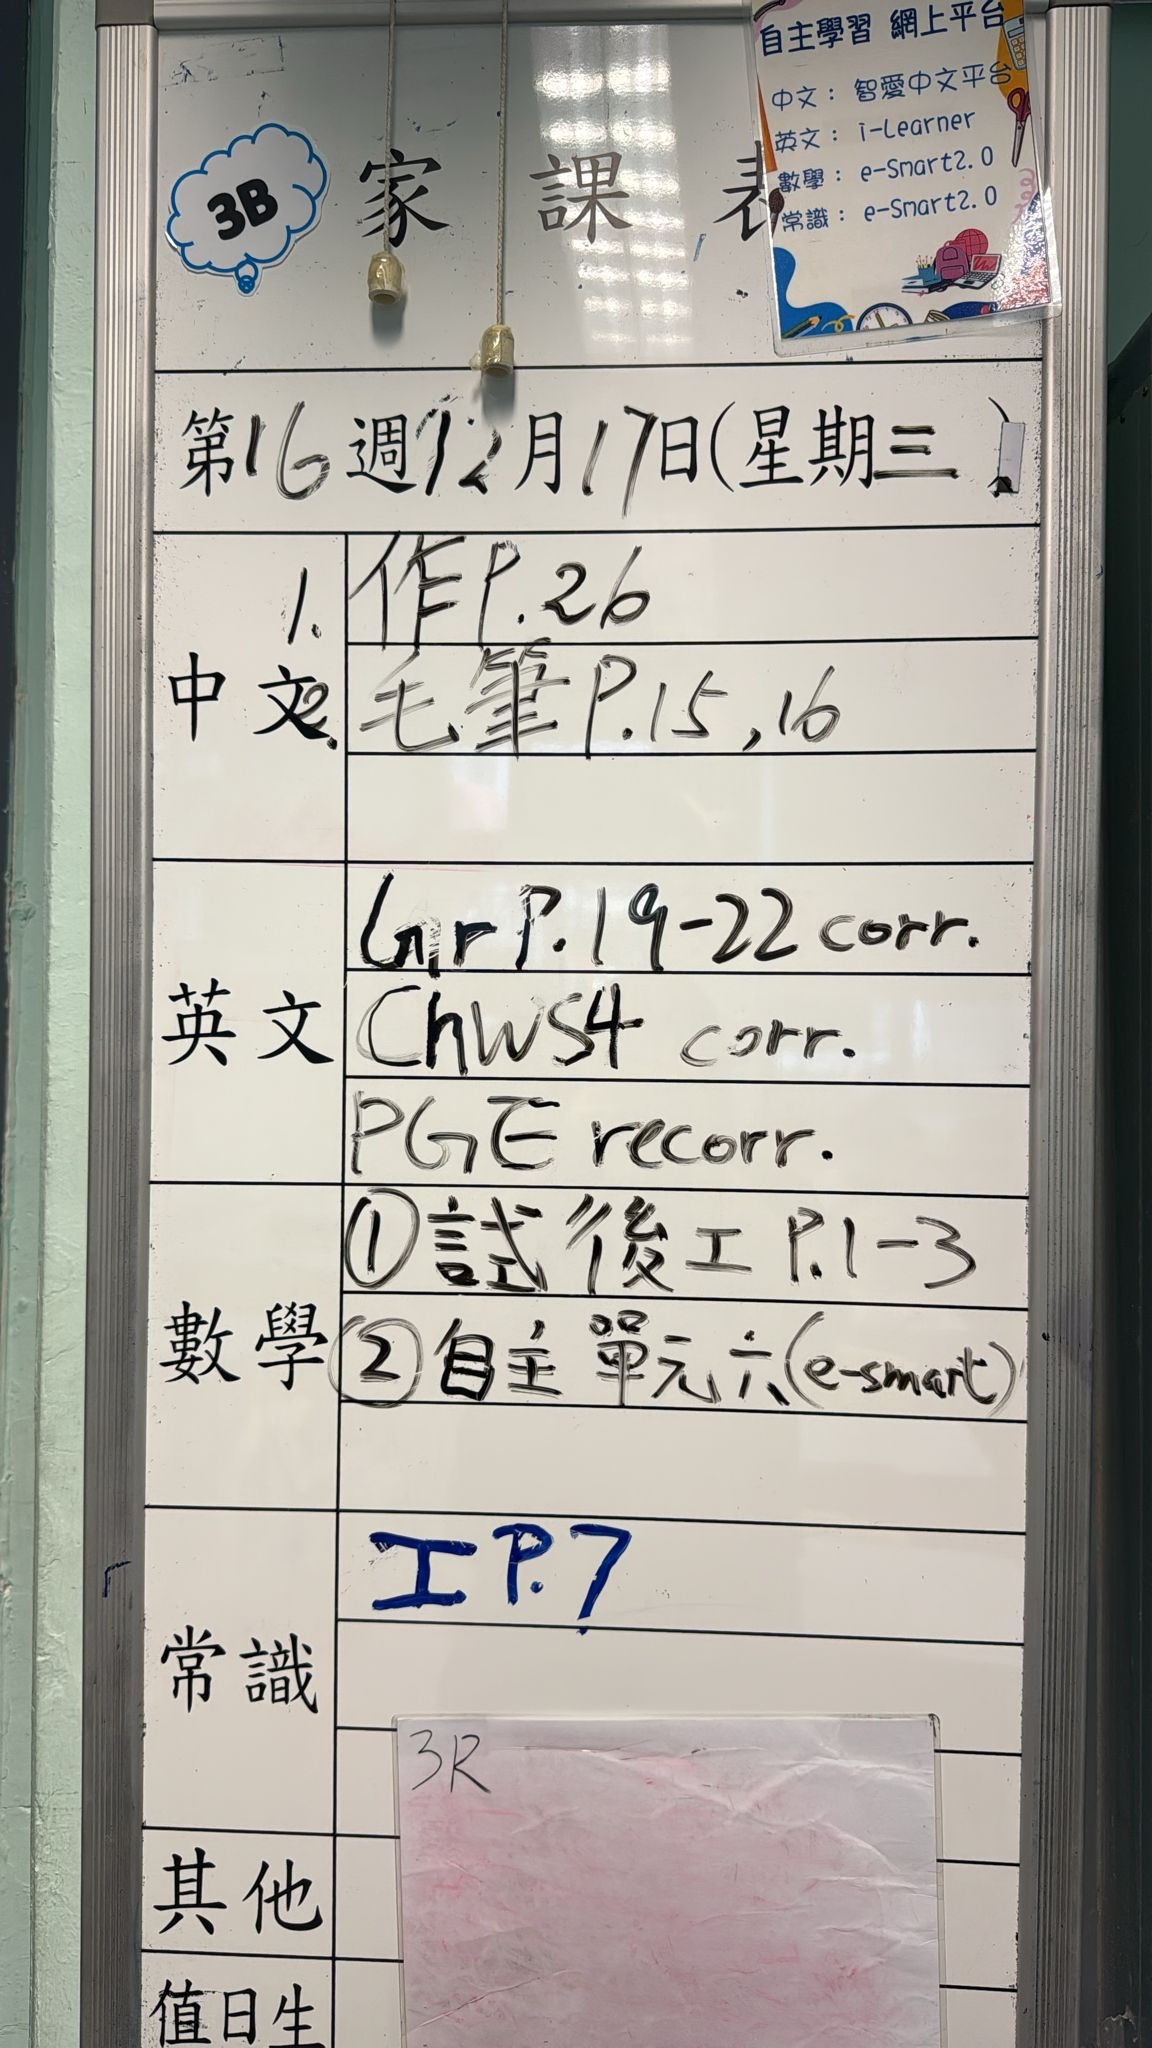 自主學習 網上平台
中文： 智愛中文平台
英文： i-Learner
數學： e-Smart2.0
常識： e-Smart2.0
3B
家 課 表
第16週12月17日(星期三)
中文
1. 作P.26
2. 毛筆P.15,16
英文
Gr P.19-22 corr.
ChWS4 corr.
PGE recorr.
數學
① 試後工 P.1-3
② 自主單元六(e-smart)
常識
工P.7
3R
其他
值日生